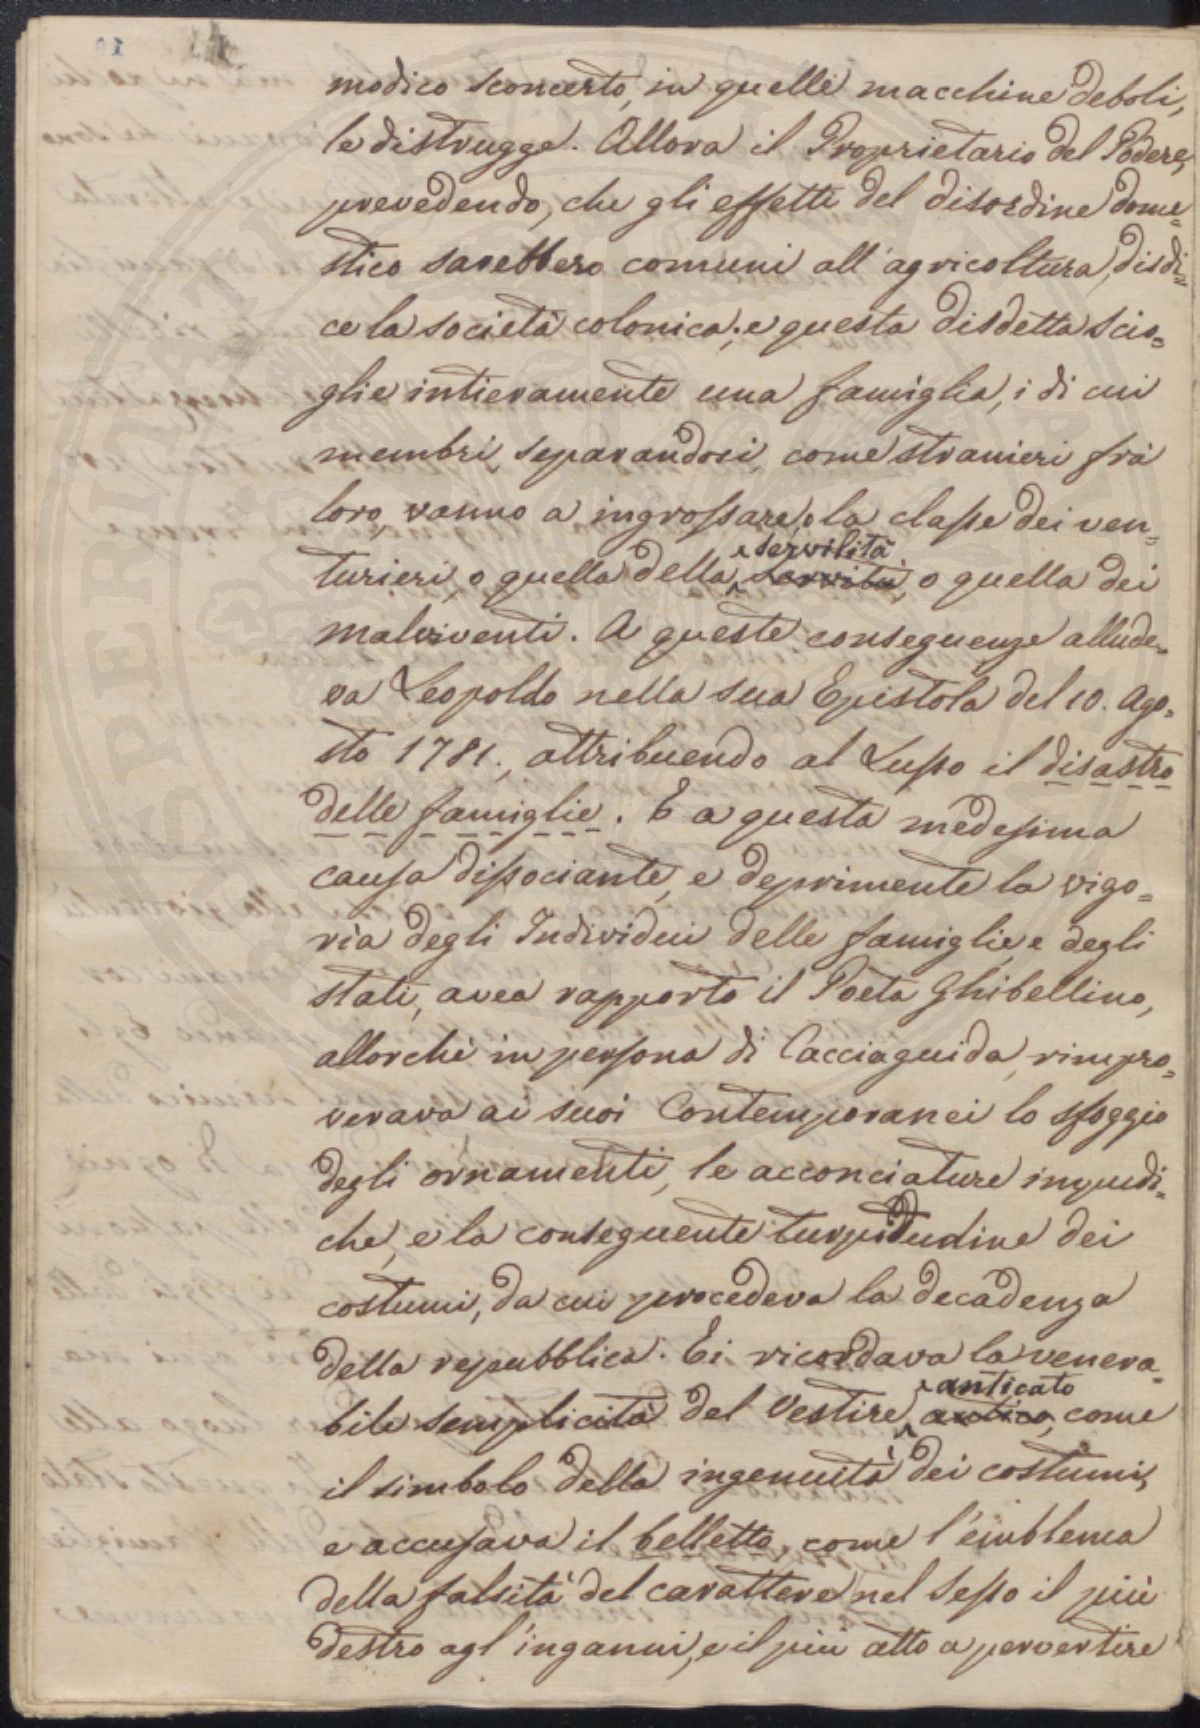 modico sconcerto, in quelle macchine deboli,
le distrugge. Allora il Proprietario del Podere,
prevedendo, che gli effetti del disordine dome=
stico sarebbero comuni all'agricoltura, disdi=
ce la società colonica; e questa disdetta scio=
glie intieramente una famiglia, i di cui
membri, separandosi, come stranieri frà
loro, vanno a ingrossare, o la classe dei ven=
turieri, o quella della servilità, o quella dei
malviventi. A queste conseguenze allude=
va Leopoldo nella sua Epistola del 10. Ago=
sto 1781., attribuendo al Lusso il disastro
delle famiglie. E a questa medesima
causa dissociante, e deprimente la vigo=
ria degli Individui delle famiglie, e degli
stati, avea rapporto il Poeta Ghibellino,
allorchè in persona di Cacciaguida, rimpro=
verava ai suoi Contemporanei lo sfoggio
degli ornamenti, le acconciature impudi=
che, e la conseguente turpitudine dei
costumi, da cui procedeva la decadenza
della repubblica. Ei ricordava la venera=
bile semplicità del Vestire anticato antico, come
il simbolo della ingenuità dei costumi,
e accusava il belletto, come l'emblema
della falsità del carattere nel Sesso il più
destro agl'inganni, e il più atto a pervertire